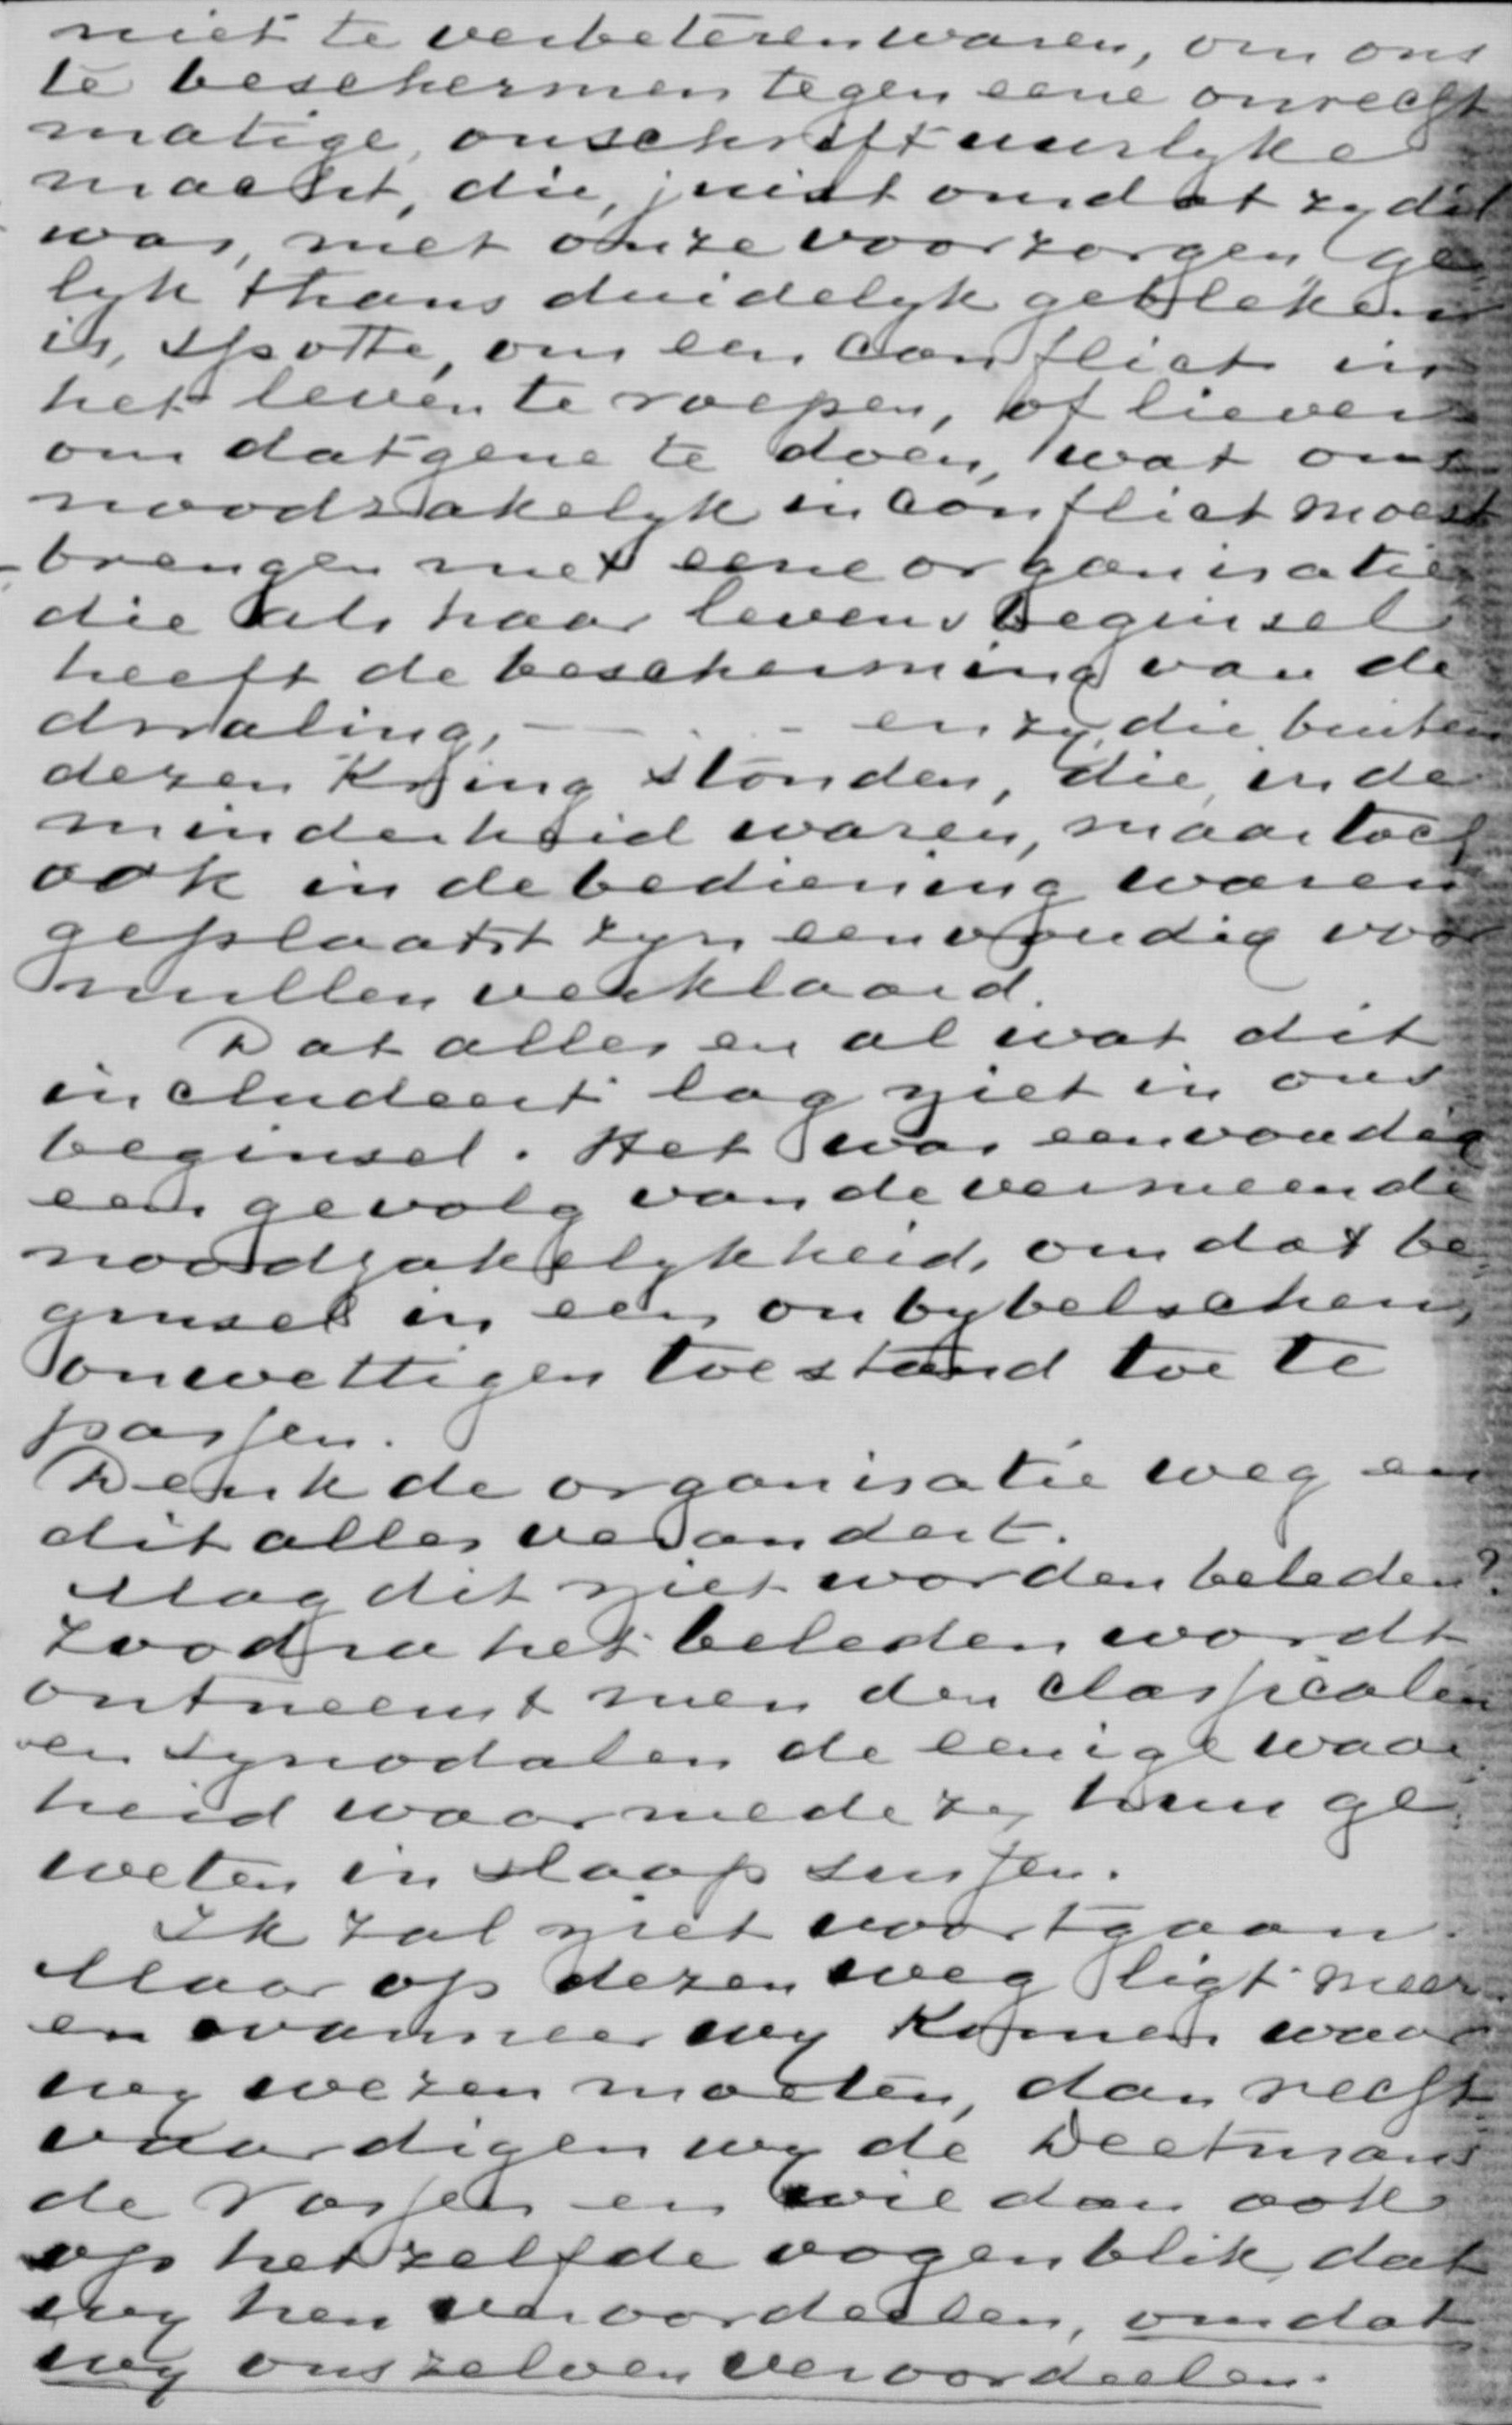 niet te verbeteren waren, om ons
te beschermen tegen eene onrecht
matige, onschriftuurlyke
macht, die, juist omdat zy dit
was, met onze voorzorgen, ge
lyk thans duidelyk gebleken
is, spotte, om een conflict in
het leven te roepen, of liever
om datgene te doen, wat ons
noodzakelyk in conflict moest
brengen met eene organisatie
die als haar levensbeginsel
heeft de bescherming van de
dwaling, - . . - en zy, die buiten
dezen Kring stonden, die in de
minderheid waren, maar toch
ook in de bediening waren
geplaatst zyn eenvoudig voor
nullen verklaard.
Dat alles en al wat dit
includeert lag niet in ons
beginsel. Het was eenvoudig
een gevolg van de vermeende
noodzakelykheid, om dat be
ginsel in een onbybelschen,
onwettigen toestand toe te
passen.
Denk de organisatie weg en
dit alles verandert.
Mag dit niet worden beleden?
Zoodra het beleden wordt
ontneemt men den classicalen
en synodalen de eenige waar
heid waarmede zy hun ge
weten in slaap sussen.
Ik zal niet voortgaan.
Maar op dezen weg ligt meer.
en wanneer wy Komen waar
wy wezen moeten, dan recht
vaardigen wy de Deetmans
de Vossen en wie dan ook
op hetzelfde oogenblik, dat
wy hen veroordeelen, omdat
wy ons zelven veroordeelen.